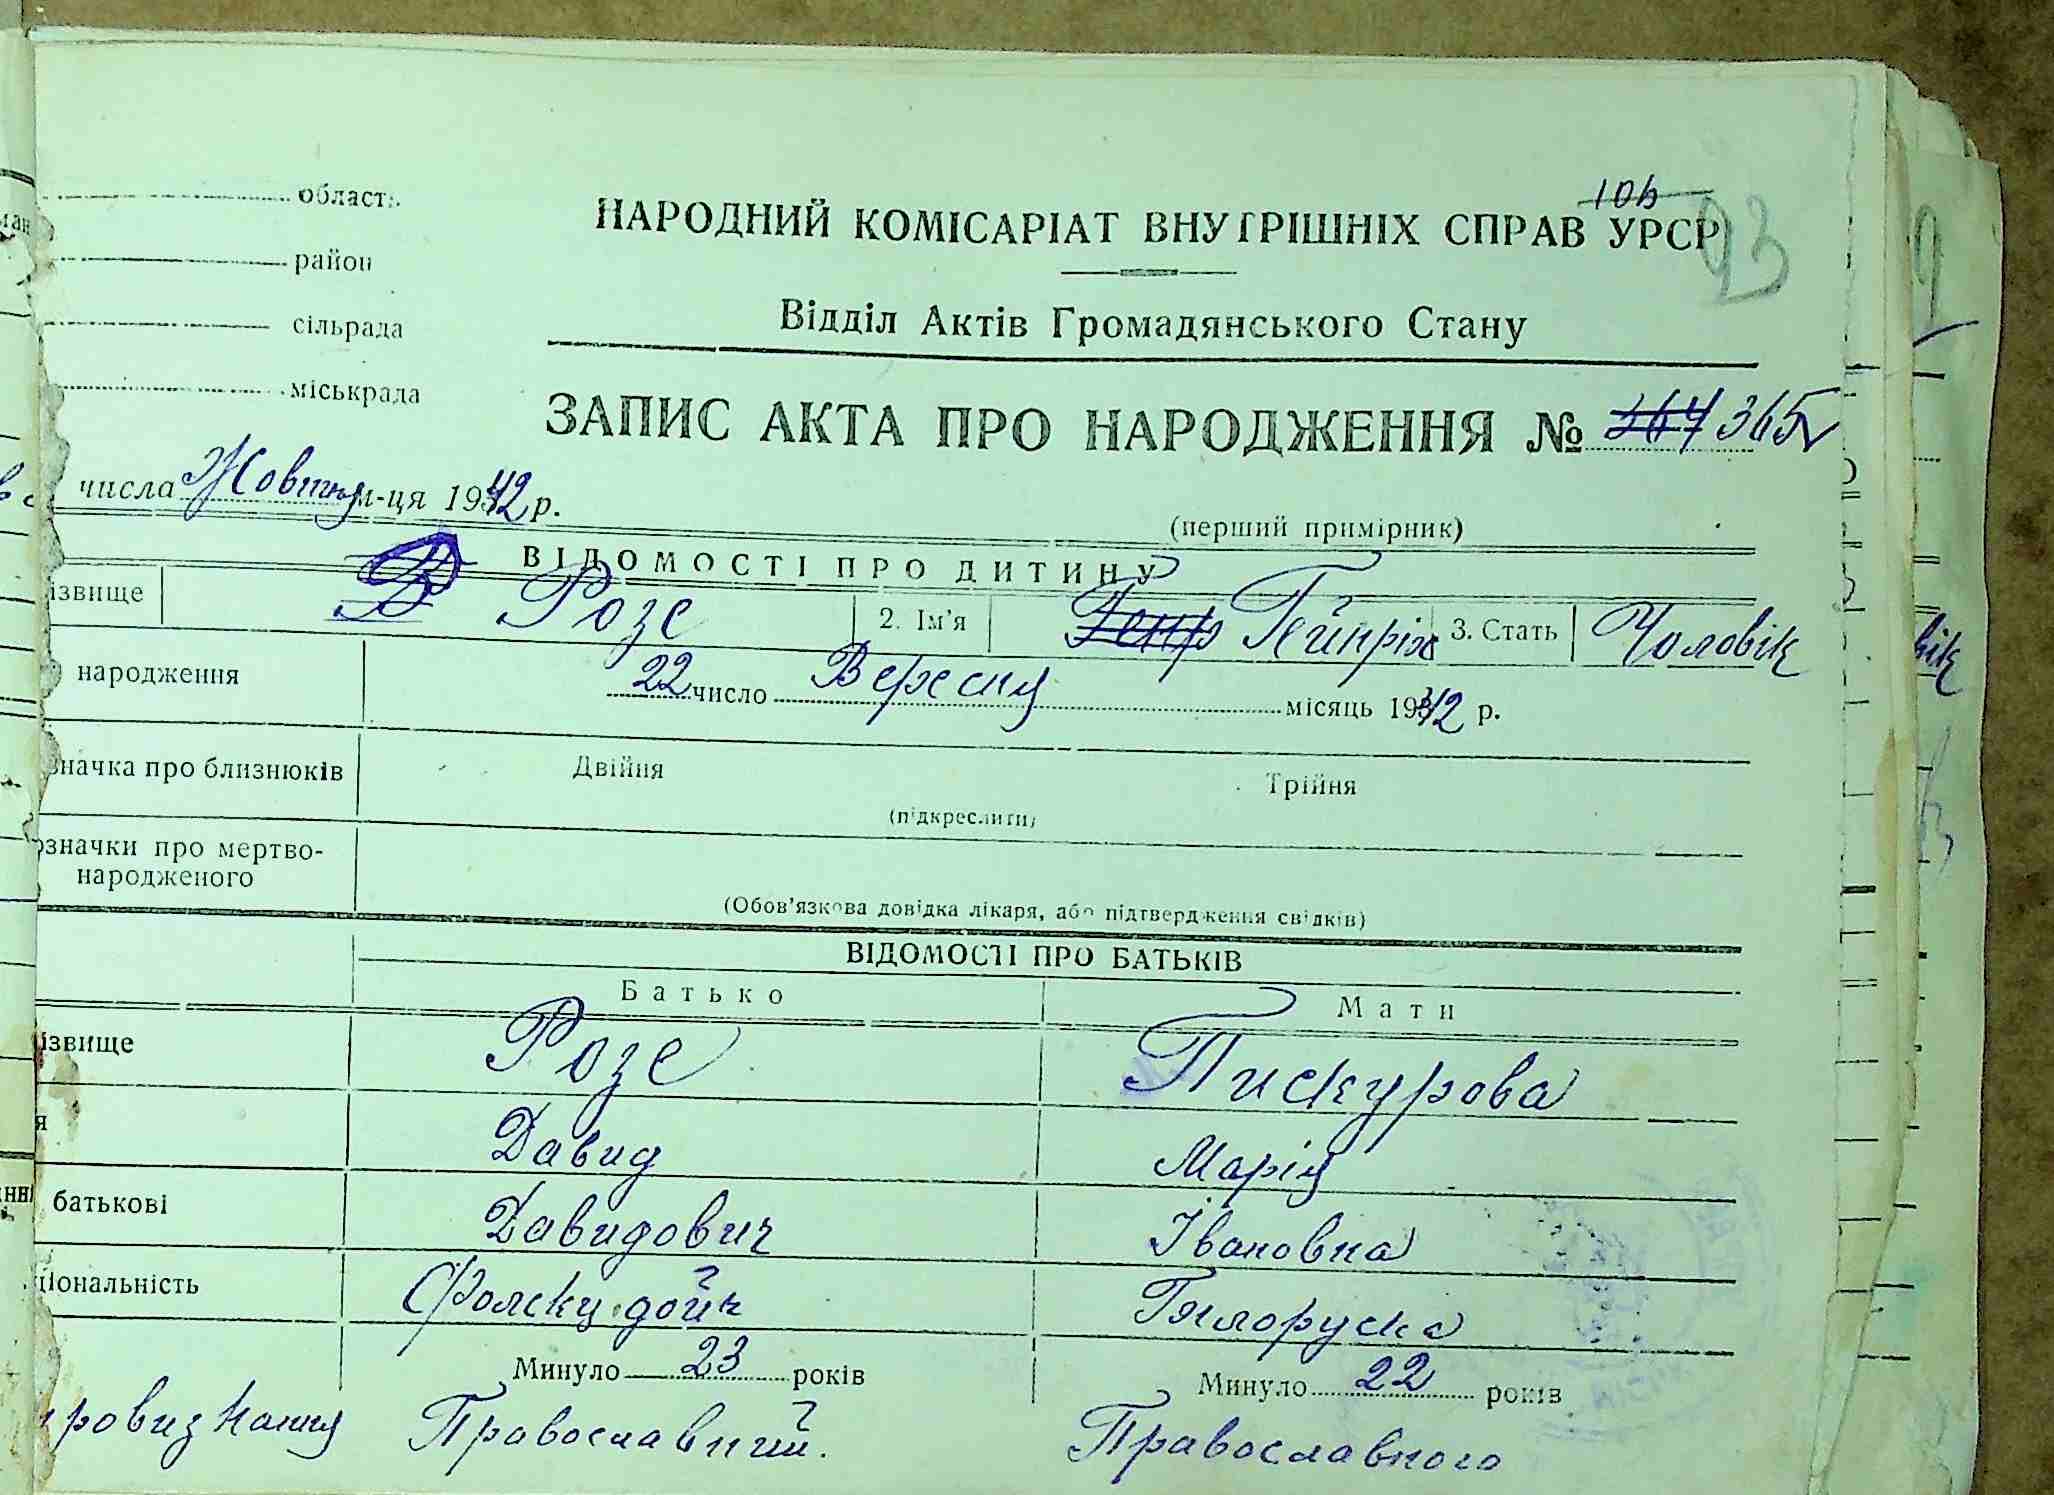 106
93
область
НАРОДНИЙ КОМІСАРІАТ ВНУТРІШНІХ СПРАВ УРСР
район
Відділ Актів Громадянського Стану
сільрада
міськрада
ЗАПИС АКТА ПРО НАРОДЖЕННЯ № 364 365
числа Жовтня м-ця 1942 р.
(перший примірник)
ВІДОМОСТІ ПРО ДИТИНУ
ізвище Розе 2. Ім'я Генр Гейнріх 3. Стать Чоловік
народження 22 число Вересня місяць 1942 р.
значка про близнюків Двійня Трійня
(підкреслити)
означки про мертво-
народженого
(Обов'язкова довідка лікаря, або підтвердження свідків)
ВІДОМОСТІ ПРО БАТЬКІВ
Батько Мати
ізвище Розе Пискурова
я Давид Марія
батькові Давидович Івановна
ціональність Фольксдойч Білоруска
Минуло 23 років Минуло 22 років
Православний. Православного